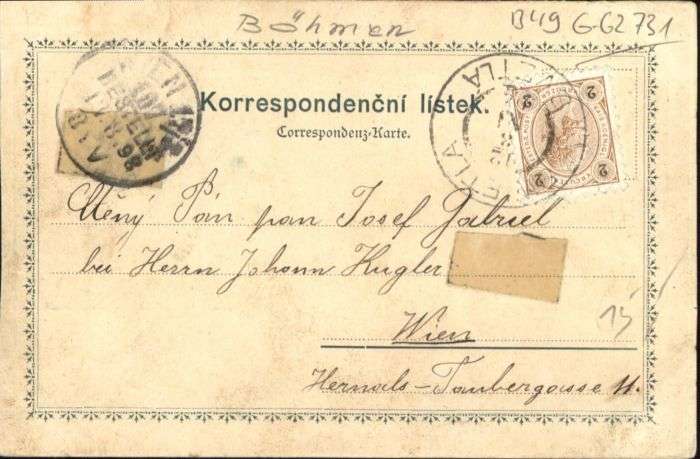 Böhmen
B49 G-G2 731
Korrespondenční lístek.
Correspondenz-Karte.
2 2
2 2
Ctěný Pán pan Josef Gabriel
bei Herrn Johann Kugler
Wien
15
Hernals-Taubergasse 11.